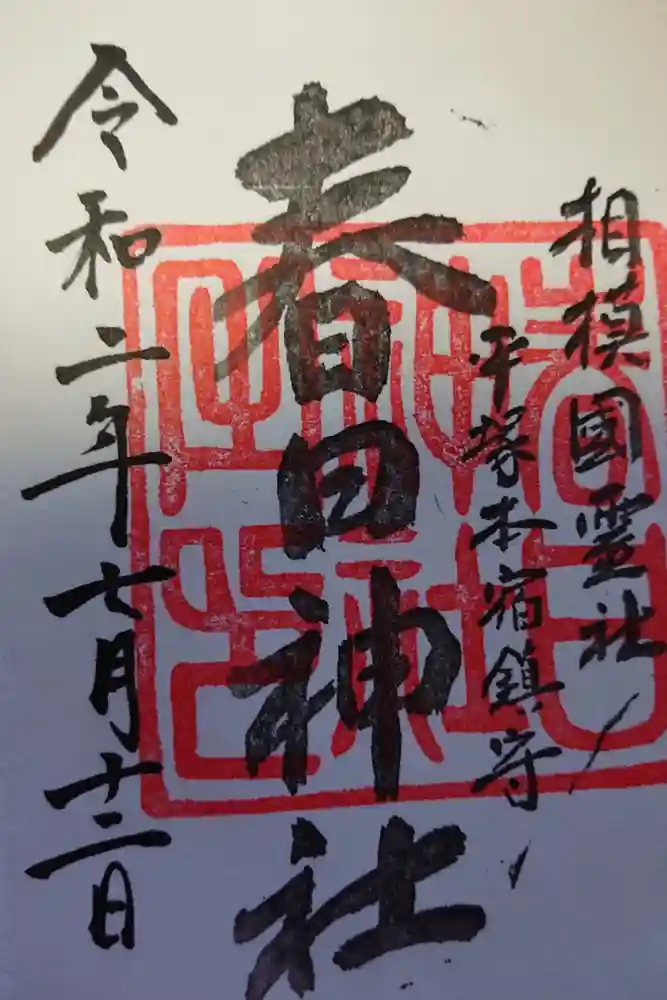 相模國霊社
平塚本宿鎮守
春日神社
令和二年七月十二日